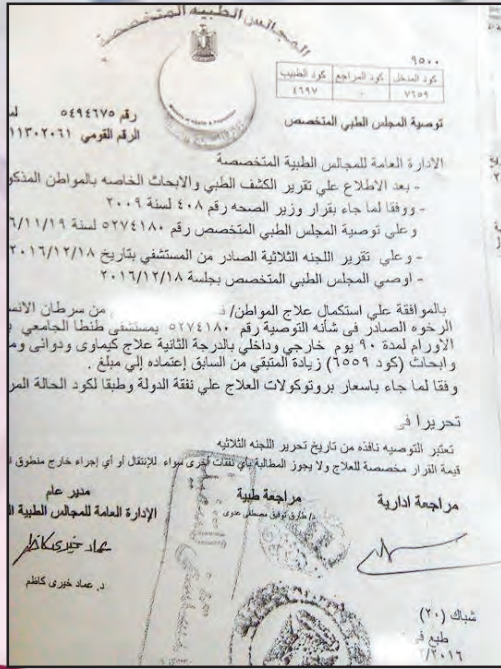 المجالس الطبية المتخصصة
٩٥٠٠
كود المدخل كود المراجع كود الطبيب
٧٦٥٩ - ٤٦٩٧
رقم ٥٤٩٤٦٧٥
توصية المجلس الطبي المتخصص
الرقم القومي ١١٣٠٢٠٦١
الادارة العامة للمجالس الطبية المتخصصة
- بعد الاطلاع علي تقرير الكشف الطبي والابحاث الخاصه بالمواطن المذكو
- ووفقا لما جاء بقرار وزير الصحه رقم ٤٠٨ لسنة ٢٠٠٩
وعلي توصية المجلس الطبي المتخصص رقم ٥٢٧٤١٨٠ لسنة ٦/١١/١٩
- وعلي تقرير اللجنه الثلاثية الصادر من المستشفي بتاريخ ٢٠١٦/١٢/١٨
- اوصي المجلس الطبي المتخصص بجلسة ٢٠١٦/١٢/١٨
بالموافقة علي استكمال علاج المواطن/ من سرطان الانس
الرخوه الصادر في شأنه التوصية رقم ٥٢٧٤١٨٠ بمستشفي طنطا الجامعي
الاورام لمدة ٩٠ يوم خارجي وداخلي بالدرجة الثانية علاج كيماوى ودوائى وم
وابحاث (كود ٦٥٥٩) زيادة المتبقي من السابق إعتماده إلي مبلغ .
وفقا لما جاء باسعار بروتوكولات العلاج علي نفقة الدولة وطبقا لكود الحالة المر
تحريرا في
تعتبر التوصيه نافذه من تاريخ تحرير اللجنه الثلاثيه
قيمة القرار مخصصة للعلاج ولا يجوز المطالبة بأي نفقات أخرى سواء للإنتقال أو أي إجراء خارج منطوق
مراجعة ادارية مراجعة طبية مدير عام
د/طارق توفيق مصطفي
الإدارة العامة للمجالس الطبية
عماد خيرى كاظم
د. عماد خيرى كاظم
شباك (٢٠)
طبع في
٢/٢٠١٦